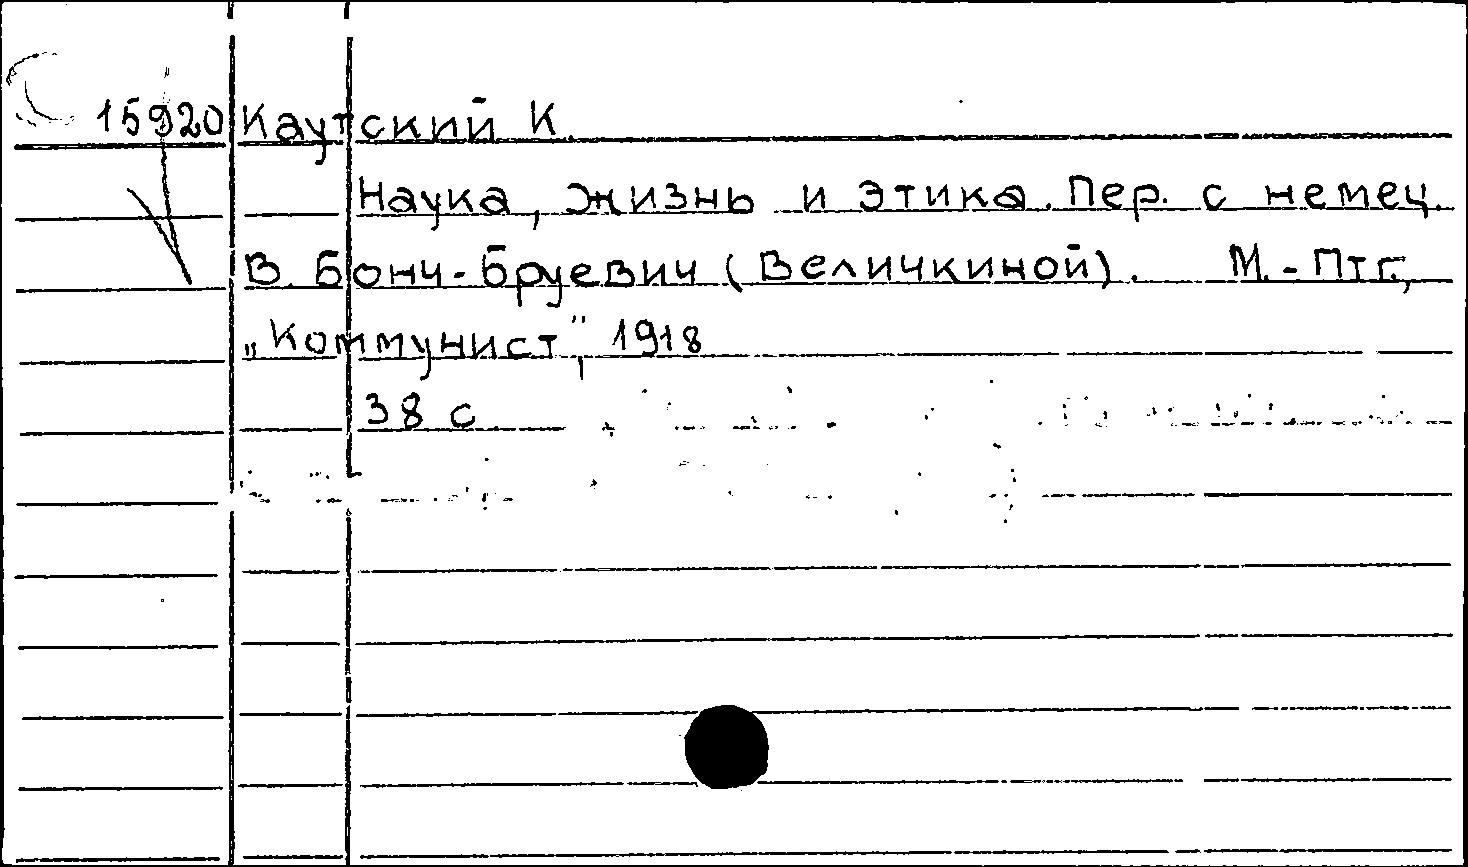 15920 Каутский К.
Наука, жизнь и этика. Пер. с немец.
В. Бонч-Бруевич (Величкиной). М.-Птг.,
„Коммунист", 1918
38 с